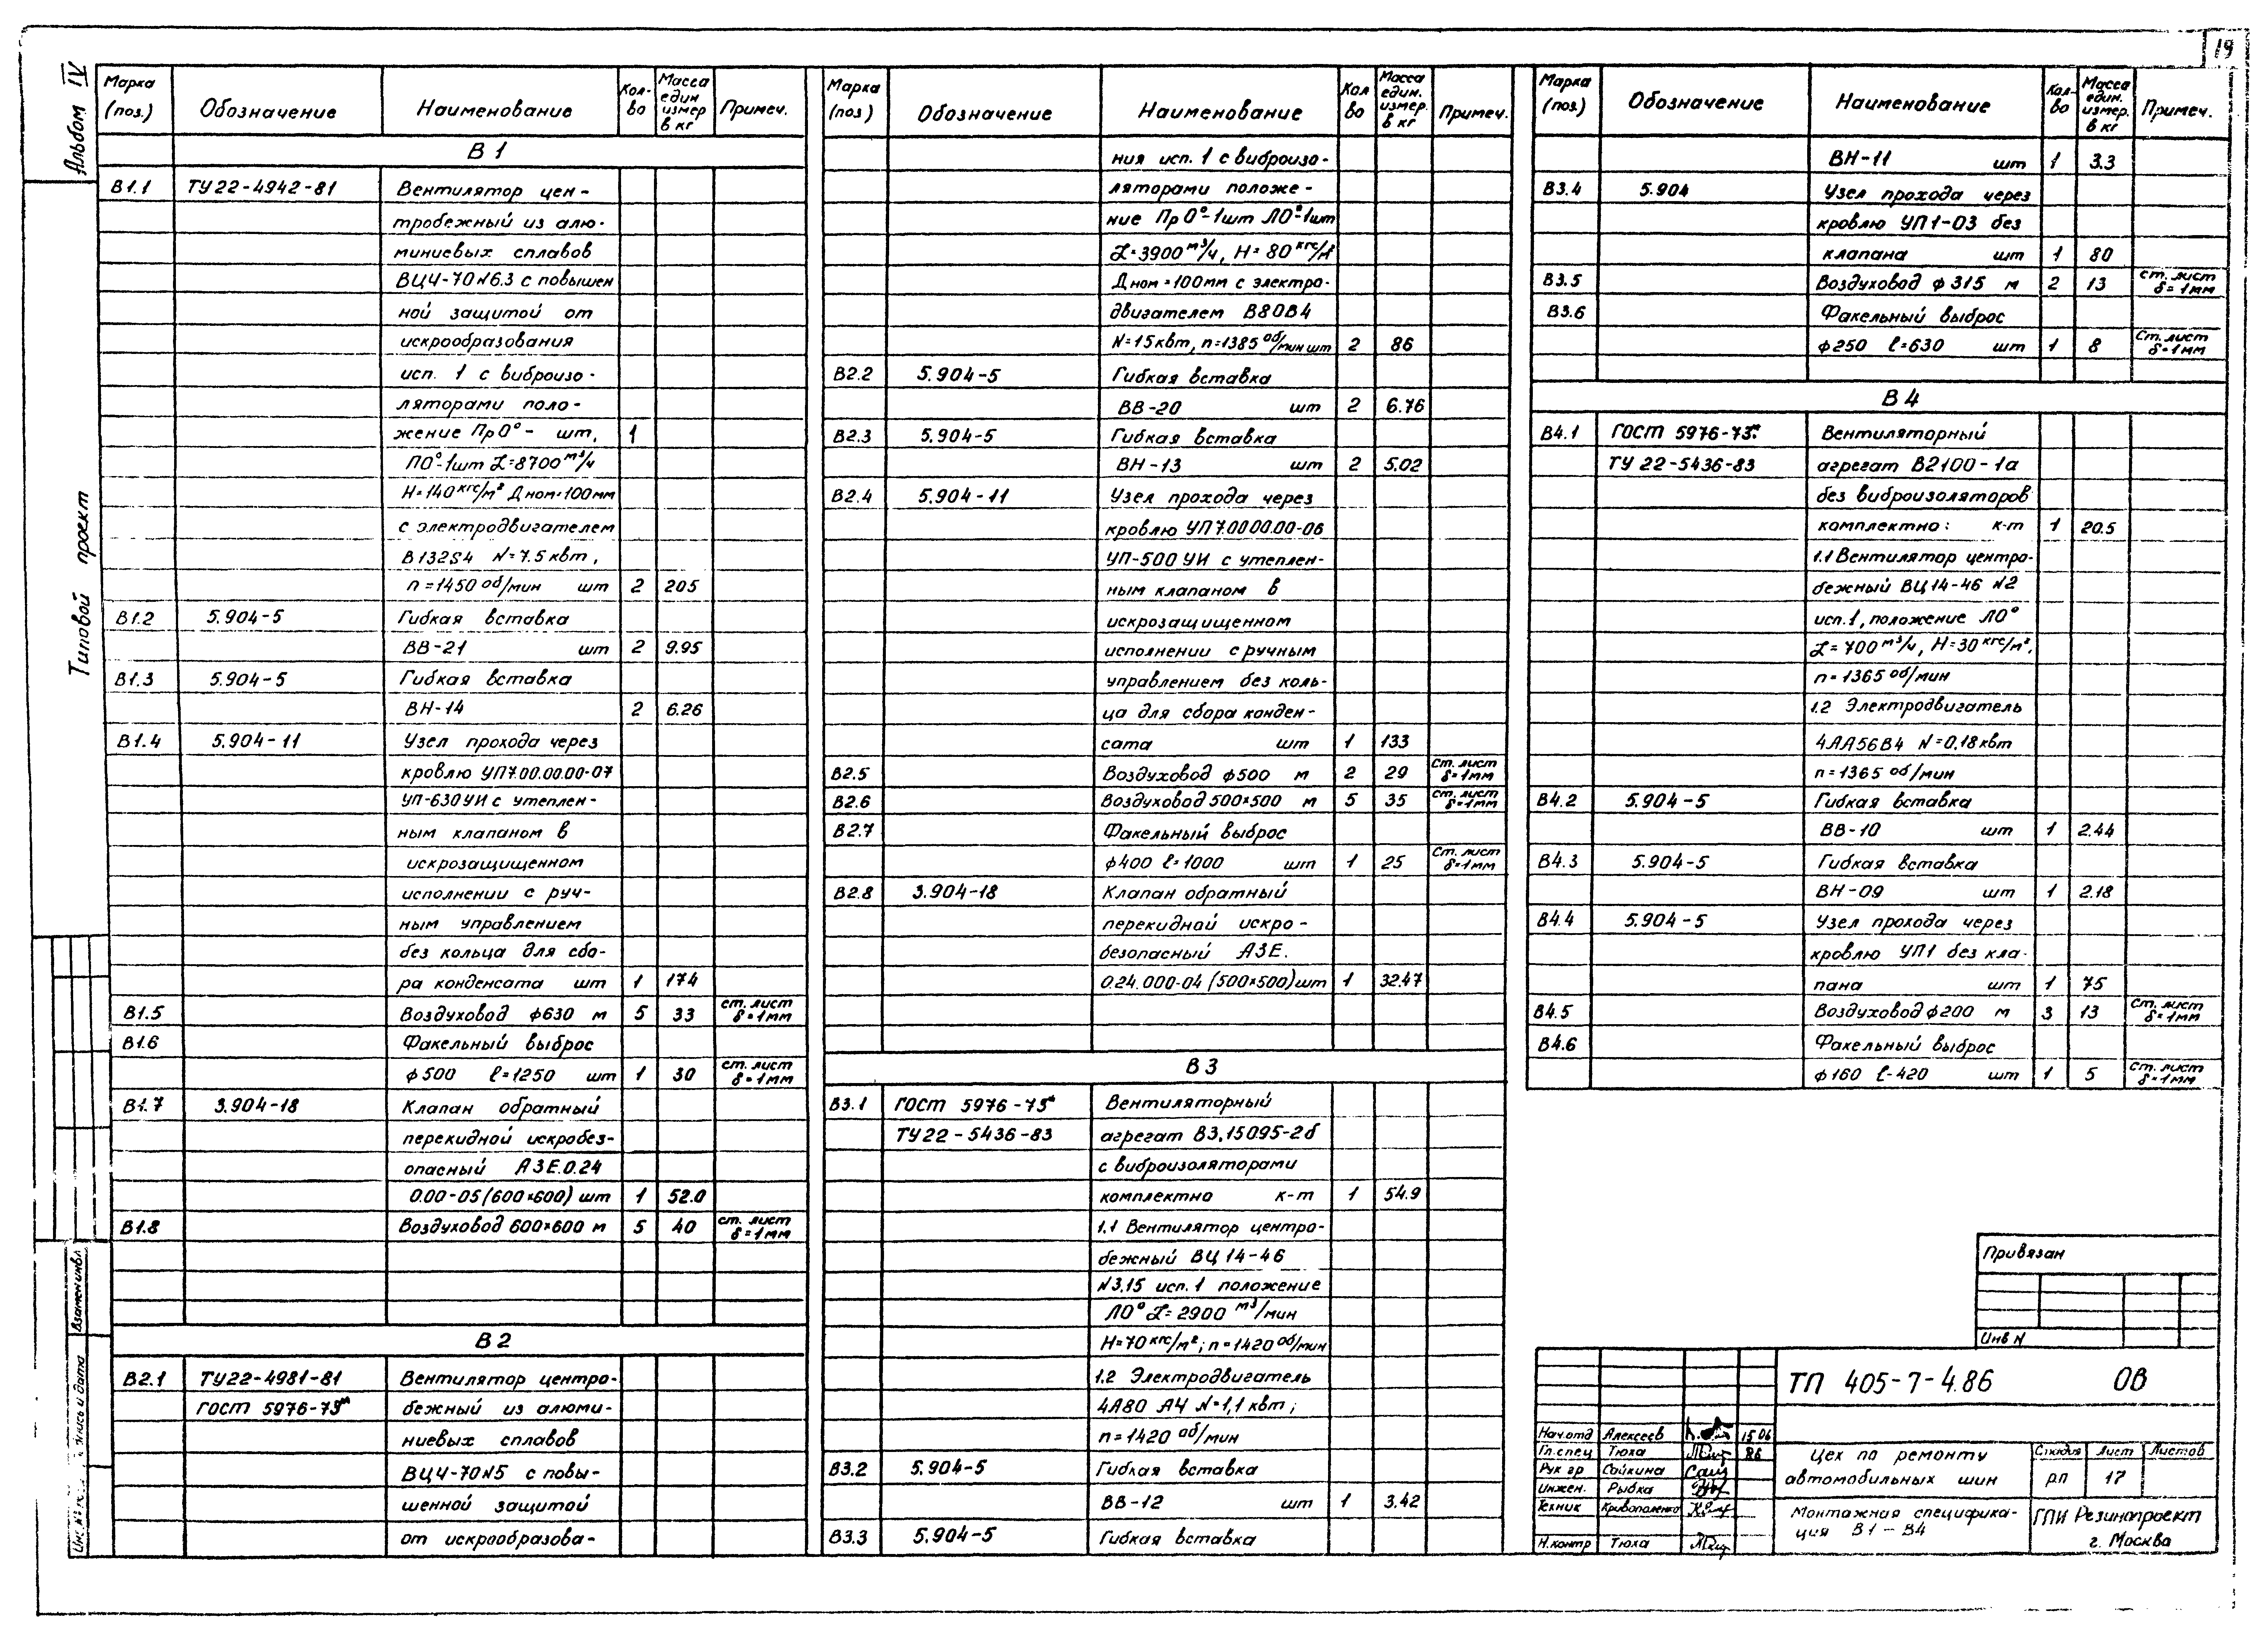 19
Альбом IV
Типовой проект
Марка (поз.) Обозначение Наименование Кол-во Масса един измер в кг Примеч.
В 1
В1.1 ТУ 22-4942-81 Вентилятор цен-
тробежный из алю-
миниевых сплавов
ВЦ4-70 №6.3 с повышен
ной защитой от
искрообразования
исп. 1 с виброизо-
ляторами поло-
жение Пр0°- шт, 1
Л0°-1шт L=8700 м³/ч
H=140 кгс/м² Дном=100мм
с электродвигателем
В132S4 N=7.5 квт,
n=1450 об/мин шт 2 205
В1.2 5.904-5 Гибкая вставка
ВВ-21 шт 2 9.95
В1.3 5.904-5 Гибкая вставка
ВН-14 2 6.26
В1.4 5.904-11 Узел прохода через
кровлю УП7.00.00.00-07
УП-630УИ с утеплен-
ным клапаном в
искрозащищенном
исполнении с руч-
ным управлением
без кольца для сбо-
ра конденсата шт 1 174
В1.5 Воздуховод ф630 м 5 33 ст. лист δ=1мм
В1.6 Факельный выброс
ф500 ℓ=1250 шт 1 30 ст. лист δ=1мм
В1.7 3.904-18 Клапан обратный
перекидной искробез-
опасный АЗЕ.0.24
0.00-05 (600×600) шт 1 52.0
В1.8 Воздуховод 600×600 м 5 40 ст. лист δ=1мм
В 2
В2.1 ТУ22-4981-81 Вентилятор центро-
ГОСТ 5976-73* бежный из алюми-
ниевых сплавов
ВЦ4-70№5 с повы-
шенной защитой
от искрообразова-
Марка (поз) Обозначение Наименование Кол во Масса един. измер. в кг Примеч.
ния исп. 1 с виброизо-
ляторами положе-
ние Пр0°-1шт Л0°-1шт
L=3900 м³/ч, H=80 кгс/м²
Дном=100мм с электро-
двигателем В80В4
N=15квт, n=1385 об/мин шт 2 86
В2.2 5.904-5 Гибкая вставка
ВВ-20 шт 2 6.76
В2.3 5.904-5 Гибкая вставка
ВН-13 шт 2 5.02
В2.4 5.904-11 Узел прохода через
кровлю УП7.00.00.00-06
УП-500 УИ с утеплен-
ным клапаном в
искрозащищенном
исполнении с ручным
управлением без коль-
ца для сбора конден-
сата шт 1 133
В2.5 Воздуховод ф500 м 2 29 Ст. лист δ=1мм
В2.6 Воздуховод 500×500 м 5 35 ст. лист δ=1мм
В2.7 Факельный выброс
ф400 ℓ=1000 шт 1 25 Ст. лист δ=1мм
В2.8 3.904-18 Клапан обратный
перекидной искро-
безопасный АЗЕ.
0.24.000-04 (500×500) шт 1 32.47
В 3
В3.1 ГОСТ 5976-73* Вентиляторный
ТУ22-5436-83 агрегат В3.15095-2б
с виброизоляторами
комплектно к-т 1 54.9
1.1 Вентилятор центро-
бежный ВЦ 14-46
№3.15 исп. 1 положение
Л0° L=2900 м³/мин
H=70 кгс/м²; n=1420 об/мин
1.2 Электродвигатель
4А80 А4 N=1,1 квт;
n=1420 об/мин
В3.2 5.904-5 Гибкая вставка
ВВ-12 шт 1 3.42
В3.3 5.904-5 Гибкая вставка
Марка (поз) Обозначение Наименование Кол-во Масса един. измер. в кг Примеч.
ВН-11 шт 1 3.3
В3.4 5.904 Узел прохода через
кровлю УП1-03 без
клапана шт 1 80
В3.5 Воздуховод ф 315 м 2 13 ст. лист δ=1мм
В3.6 Факельный выброс
ф250 ℓ=630 шт 1 8 Ст. лист δ=1мм
В 4
В4.1 ГОСТ 5976-73* Вентиляторный
ТУ 22-5436-83 агрегат В2100-1а
без виброизоляторов
комплектно: к-т 1 20.5
1.1 Вентилятор центро-
бежный ВЦ 14-46 №2
исп.1, положение Л0°
L=700 м³/ч, H=30 кгс/м².
n=1365 об/мин
1.2 Электродвигатель
4АА56В4 N=0.18 квт
n=1365 об/мин
В4.2 5.904-5 Гибкая вставка
ВВ-10 шт 1 2.44
В4.3 5.904-5 Гибкая вставка
ВН-09 шт 1 2.18
В4.4 5.904-5 Узел прохода через
кровлю УП1 без кла-
пана шт 1 75
В4.5 Воздуховод ф200 м 3 13 Ст. лист δ=1мм
В4.6 Факельный выброс
ф160 ℓ-420 шт 1 5 Ст. лист δ=1мм
Привязан
Инв N
ТП 405-7-4.86 ОВ
Нач.отд Алексеев 15.06
Гл.спец Тюха 86
Рук гр Сайкина
Инжен. Рыбка
Техник Кривопаленко
Н.контр Тюха
Цех по ремонту
автомобильных шин
Стадия Лист Листов
РП 17
Монтажная специфика-
ция В1-В4
ГПИ Резинопроект
г. Москва
Взамен инв.